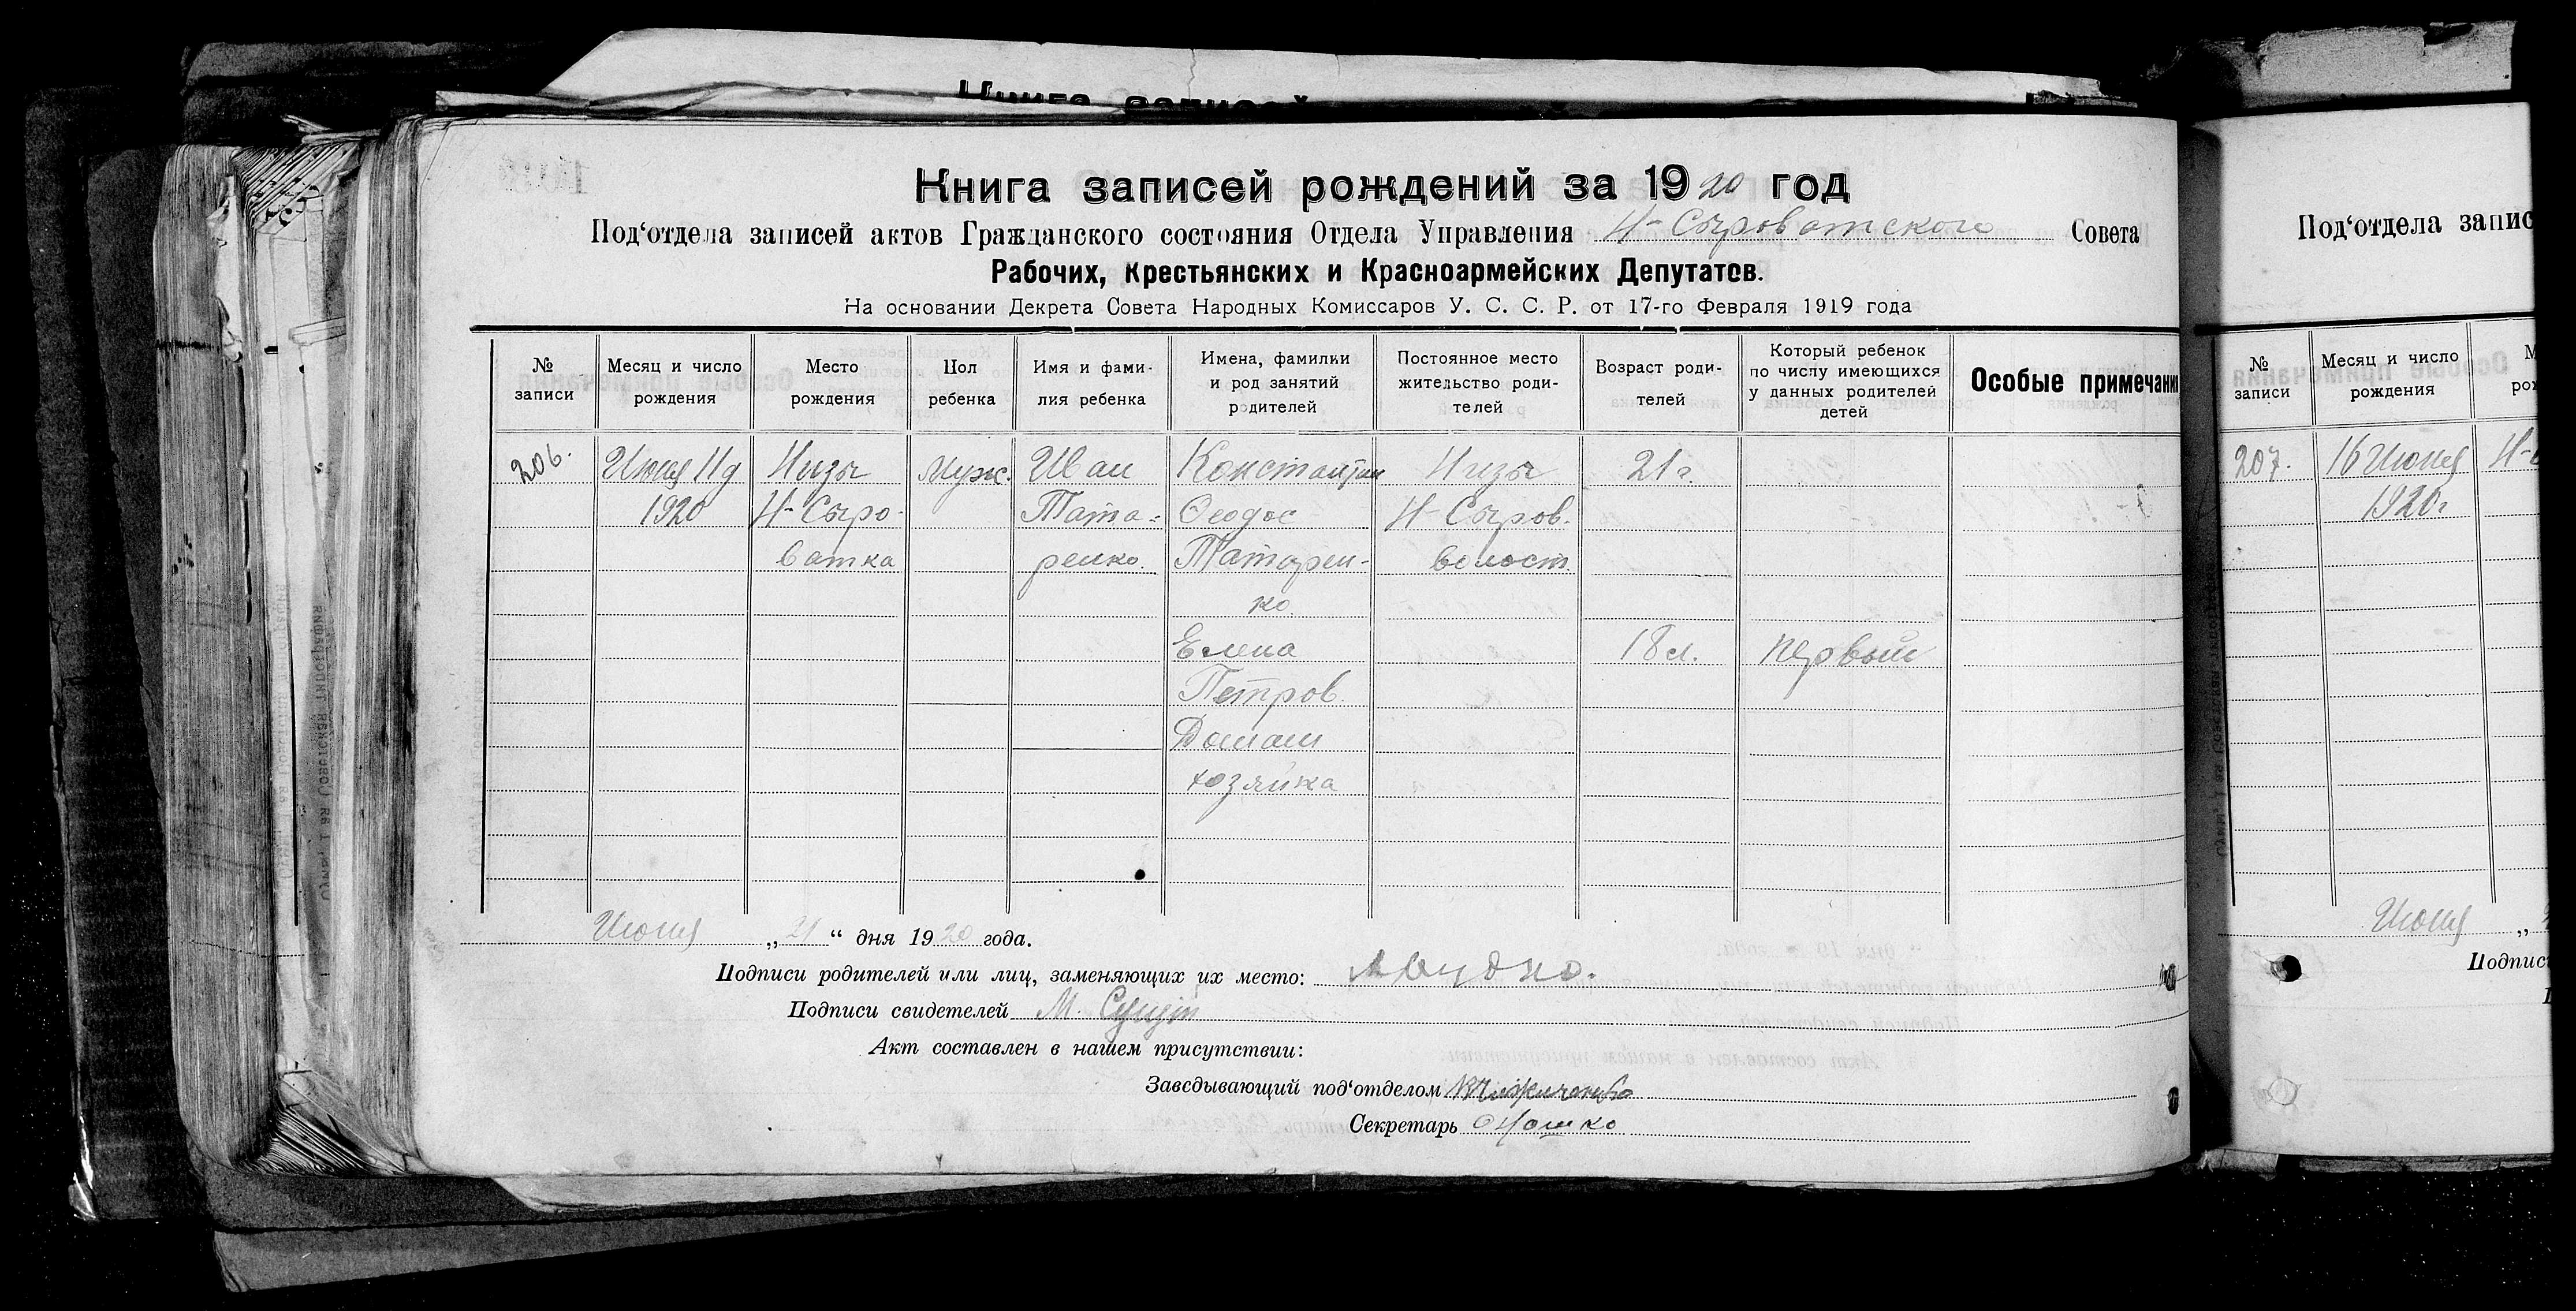 Книга записей
Книга записей рождений за 1920 год
Под‘отдела записей актов Гражданского состояния Отдела Управления Н-Сыроватского Совета
Рабочих, Крестьянских и Красноармейских Депутатов.
На основании Декрета Совета Народных Комиссаров У. С. С. Р. от 17-го Февраля 1919 года
№ записи
Месяц и число рождения
Место рождения
Пол ребенка
Имя и фами- лия ребенка
Имена, фамилии и род занятий родителей
Постоянное место жительство роди- телей
Возраст роди- телей
Который ребенок по числу имеющихся у данных родителей детей
Особые примечани
206. Июня 11д Низы муж. Иван Константин Низы 21 г.
1920 Н-Сыро- Тата= Феодос Н-Сыров.
ватка ренко. Татарен- волост.
ко.
Елена 18 л. первый
Петров.
Домаш
хозяйка
Июня „21“ дня 1920 года.
Подписи родителей или лиц, заменяющих их место:
Подписи свидетелей М.
Акт составлен в нашем присутствии:
Заведывающий под‘отделом
Секретарь
Под‘отдела запис
№ записи
Месяц и число рождения
М
рож
207. 16 Июня Н-
1920 г
Июня „
Подпис